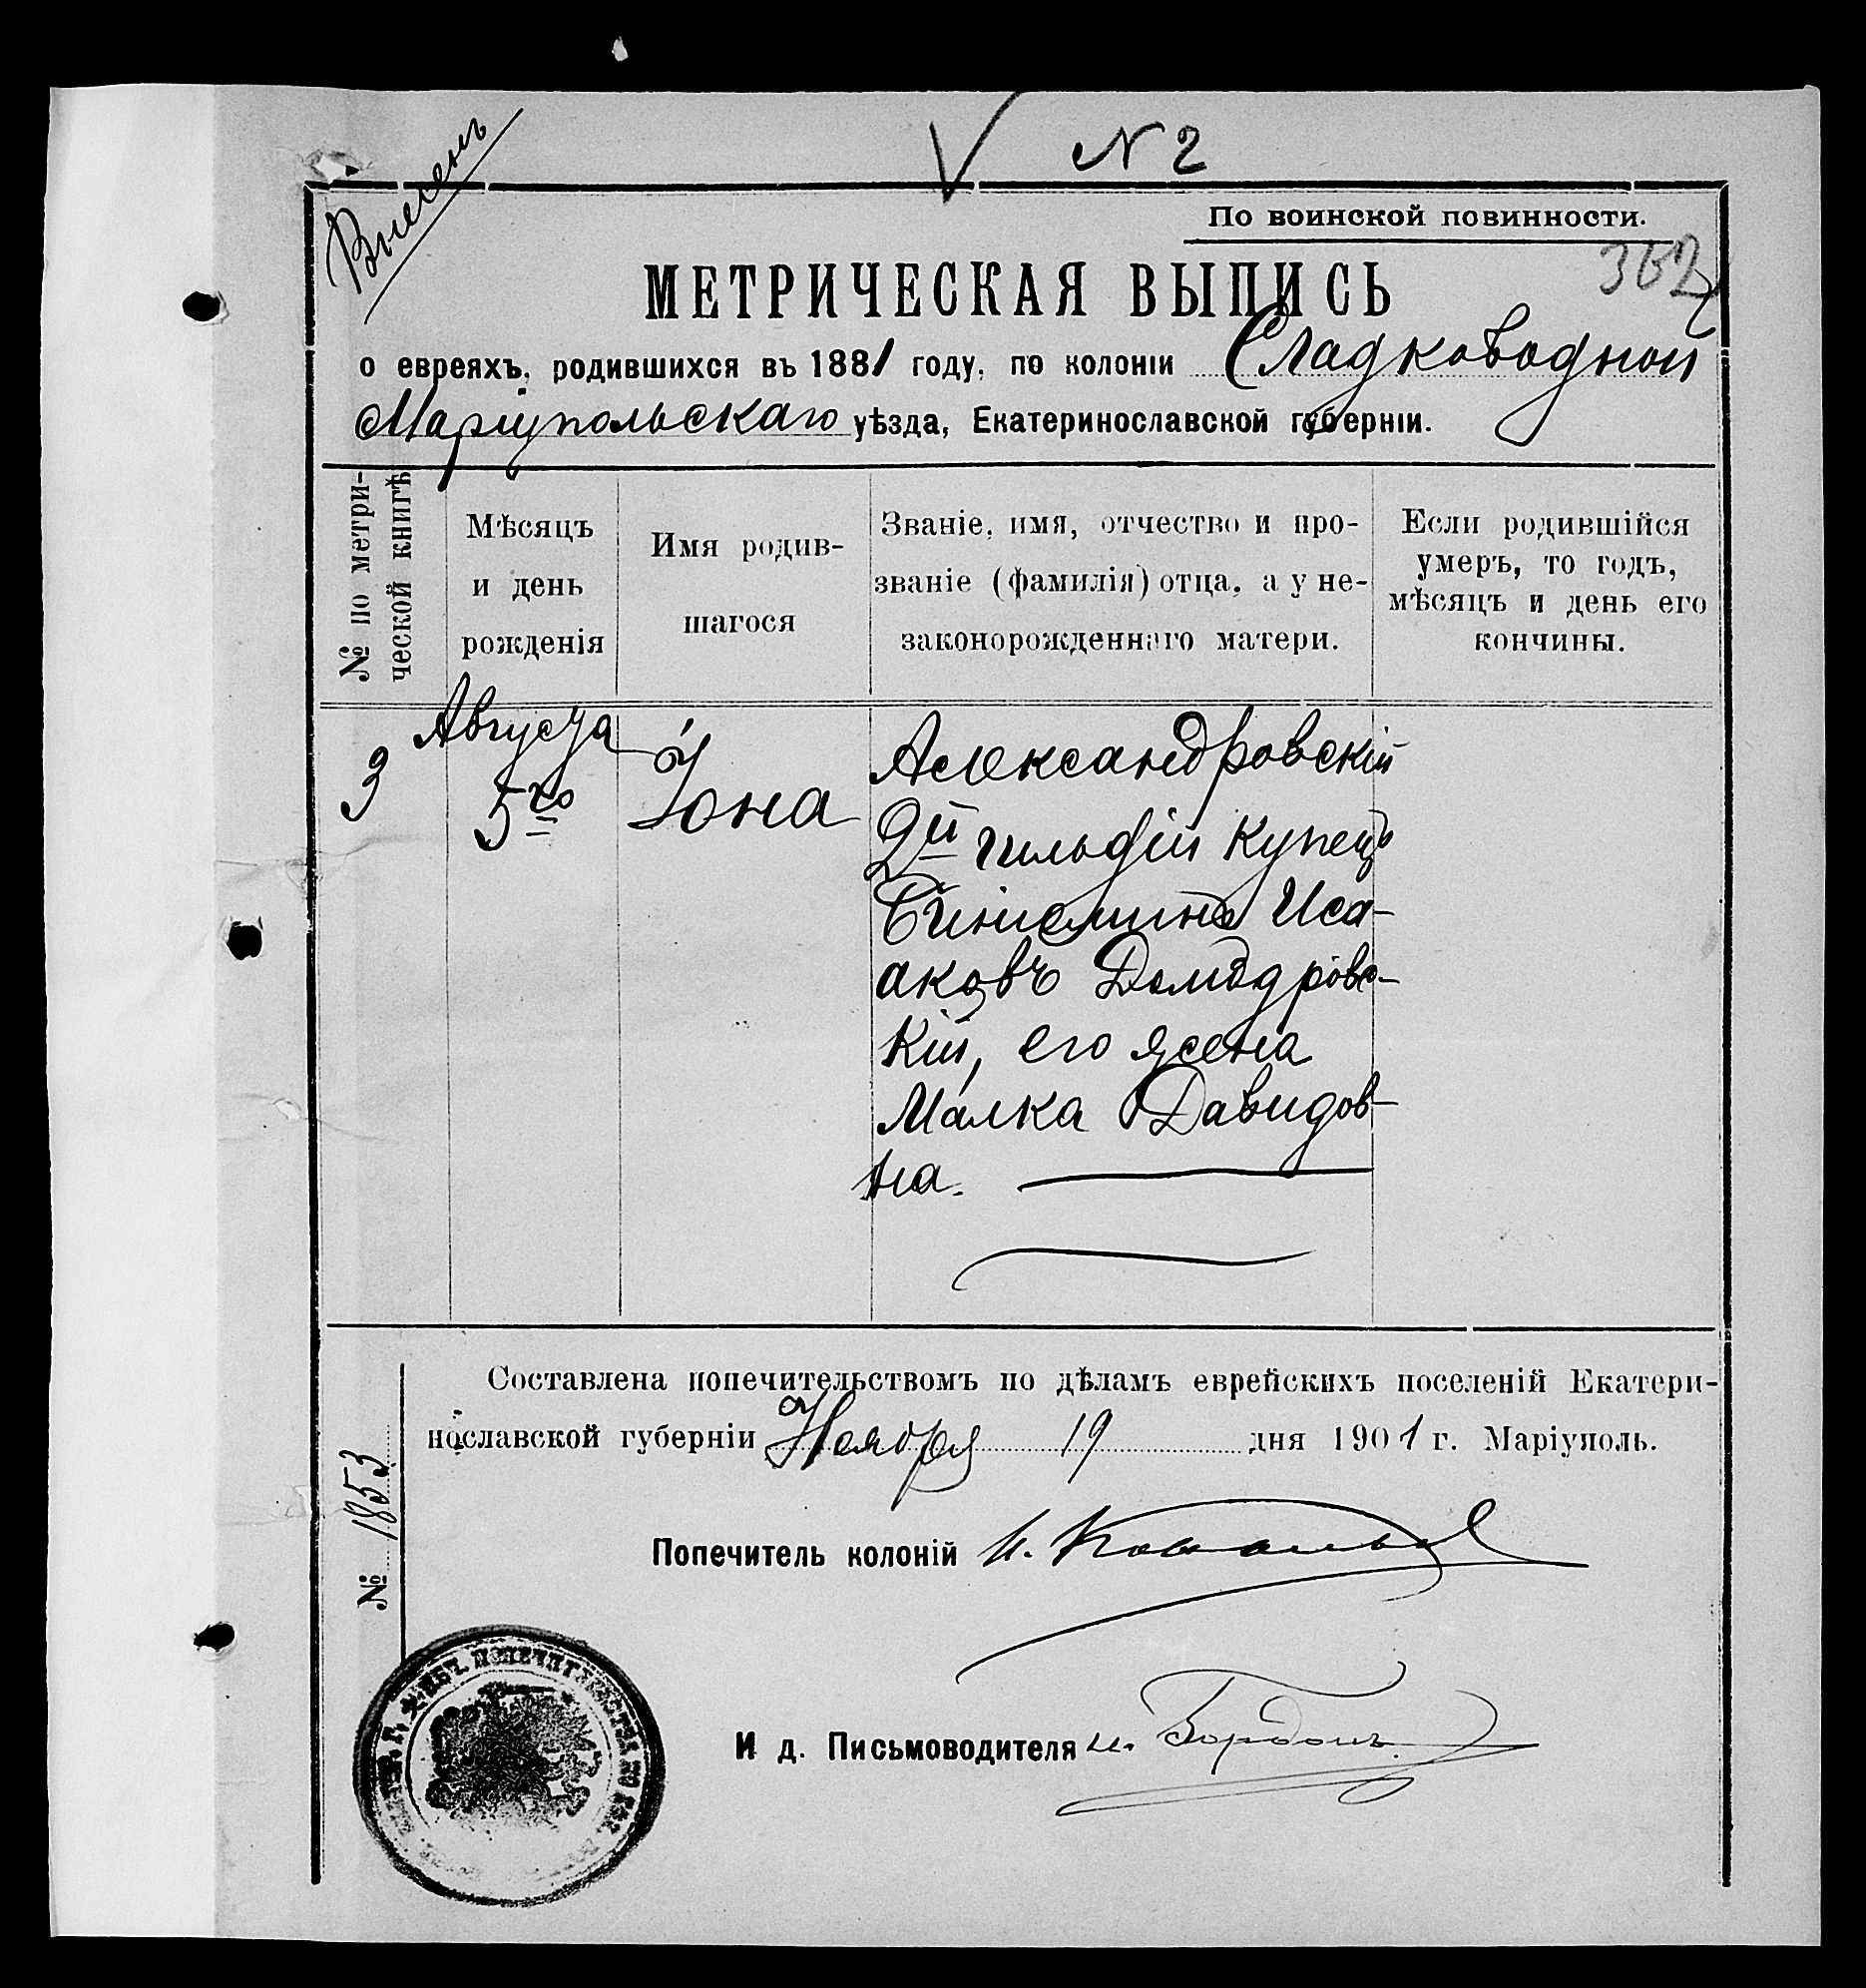 N 2
По воинской повинности.
МЕТРИЧЕСКАЯ ВЫПИСЬ
о евреяхъ, родившихся въ 1881 году, по колонiи Сладководной
Марiупольскаго уѣзда, Екатеринославской губернiи.
№ по метри-
ческой книгѣ
Мѣсяцъ
и день
рожденiя
Имя родив-
шагося
Званiе, имя, отчество и про-
званiе (фамилiя) отца, а у не-
законорожденнаго матери.
Если родившiйся
умеръ, то годъ,
мѣсяцъ и день его
кончины.
3
Августа
5го
Iона
Александровскiй
2й гильдiи купецъ
Исa-
аковъ
кiй, его жена
Малка Давидов-
на.
Составлена попечительствомъ по дѣламъ еврейскихъ поселенiй Екатери-
нославской губернiи Ноября 19 дня 1901 г. Марiуполь.
№ 1853
Попечитель колонiй
И д. Письмоводителя